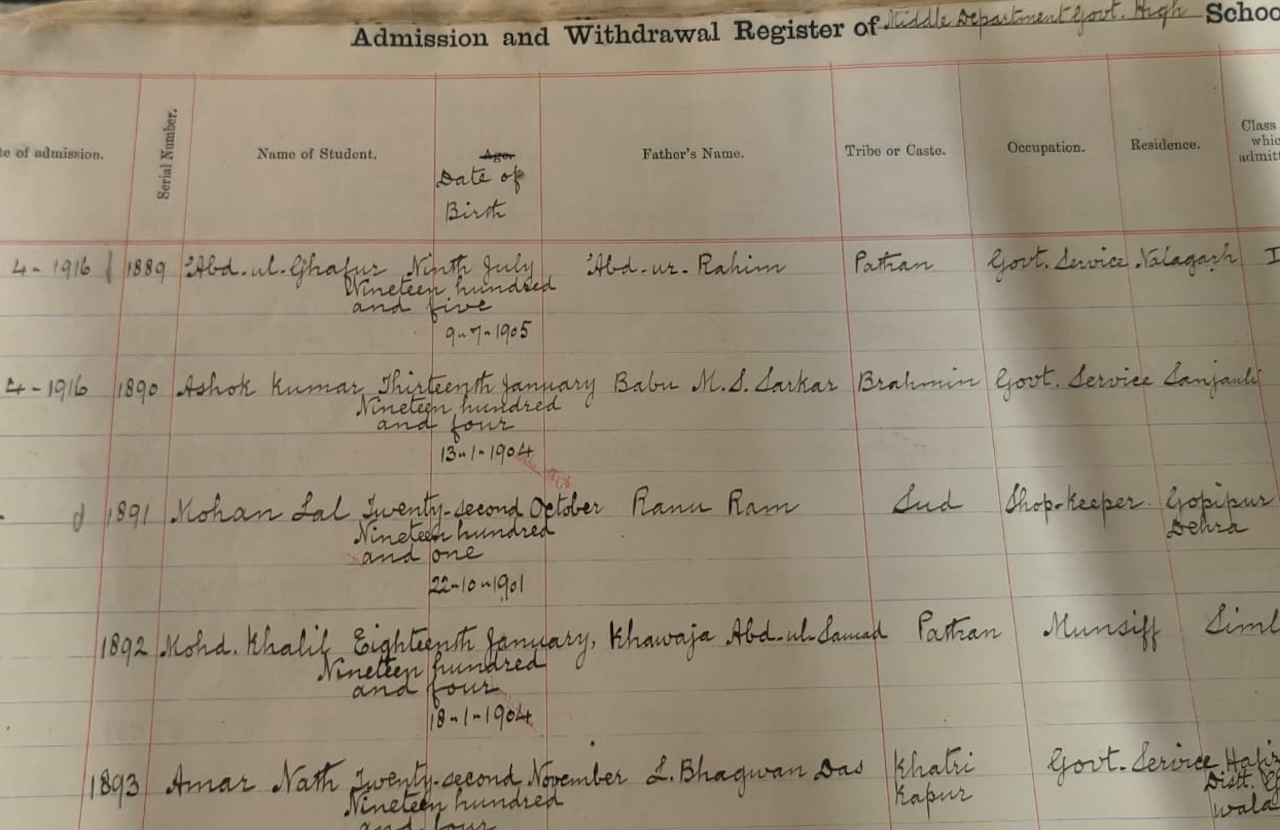 Admission and Withdrawal Register of Middle Department Govt. High Schoo
te of admission. Serial Number. Name of Student. Age. Father's Name. Tribe or Caste. Occupation. Residence. Class
whic
admitt
Date of
Birth
4-1916 1889 'Abd-ul-Ghafur Ninth July 'Abd-ur-Rahim Pathan Govt. Service Nalagarh I
Nineteen hundred
and five
9-7-1905
4-1916 1890 Ashok Kumar Thirteenth January Babu M.S. Sarkar Brahmin Govt. Service Sanjauli
Nineteen hundred
and four
13-1-1904
1891 Mohan Lal Twenty-second October Ranu Ram Sud Shop-keeper Gopipur
Dehra
Nineteen hundred
and one
22-10-1901
1892 Mohd. Khalil Eighteenth January, Khawaja Abd-ul-Samad Pathan Munsiff Siml
Nineteen hundred
and four
18-1-1904
1893 Amar Nath Twenty-second November L. Bhagwan Das Khatri Govt. Service Hafiz
Kapur Distt. G
wala
Nineteen hundred
and four